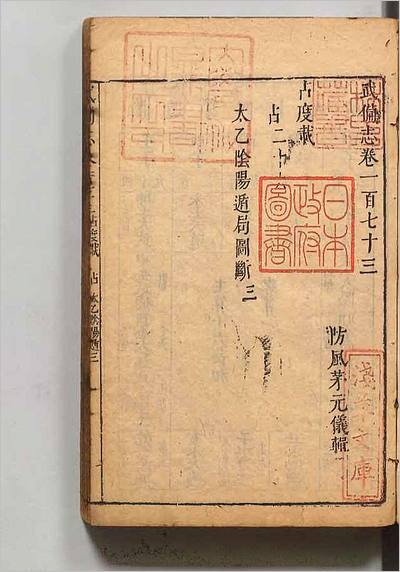 武備志卷一百七十三
防風茅元儀輯
占度載
占二十
太乙陰陽遁局圖斷三
日本
政府
圖書
淺草文庫
占度載 占 太乙陰陽遁三